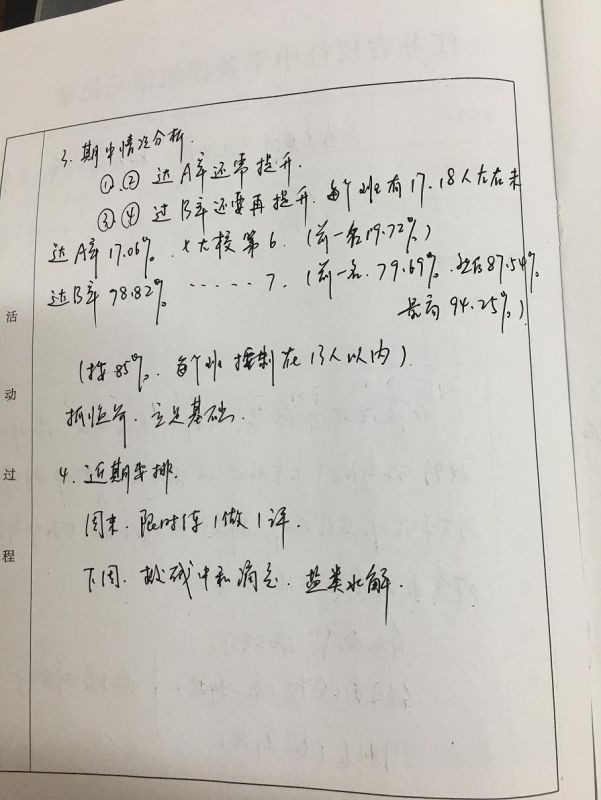 3. 期中情况分析.
①② 达A率还需提升.
③④ 过B率还要再提升. 每个班有17.18人左右未
达A率 17.06%. 七大校第6. (前一名19.72%)
过B率 78.82% ····· 7. (前一名. 79.69%. 87.54%.
最高94.25%.)
(按85%. 每个班控制在13人以内).
抓临界. 立足基础.
4. 近期安排.
周末. 限时练1做1评.
下周. 酸碱中和滴定. 盐类水解.
活
动
过
程